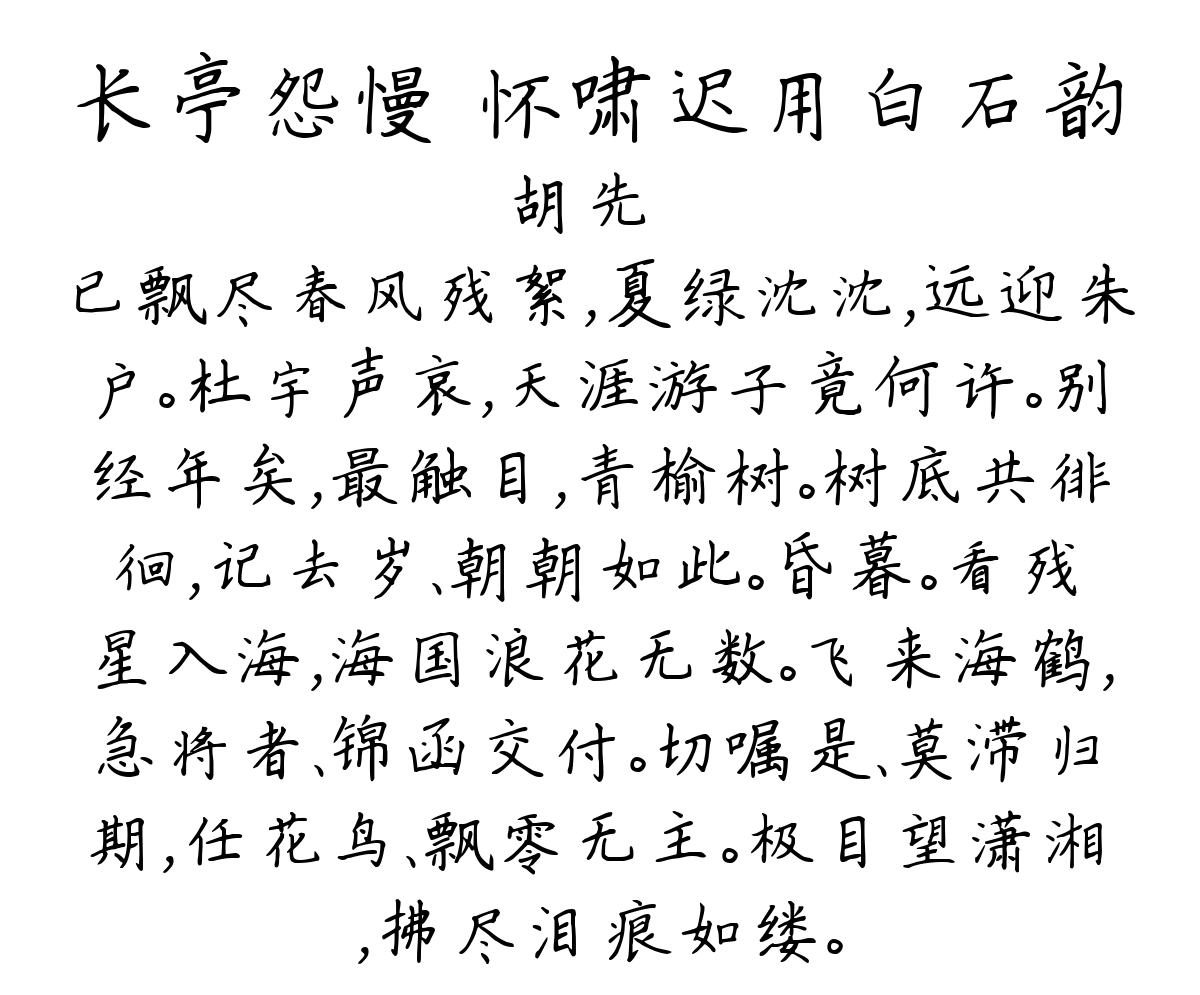 长亭怨慢 怀啸迟用白石韵
胡先
已飘尽春风残絮,夏绿沈沈,远迎朱
户。杜宇声哀,天涯游子竟何许。别
经年矣,最触目,青榆树。树底共徘
徊,记去岁、朝朝如此。昏暮。看残
星入海,海国浪花无数。飞来海鹤,
急将者、锦函交付。切嘱是、莫滞归
期,任花鸟、飘零无主。极目望潇湘
,拂尽泪痕如缕。